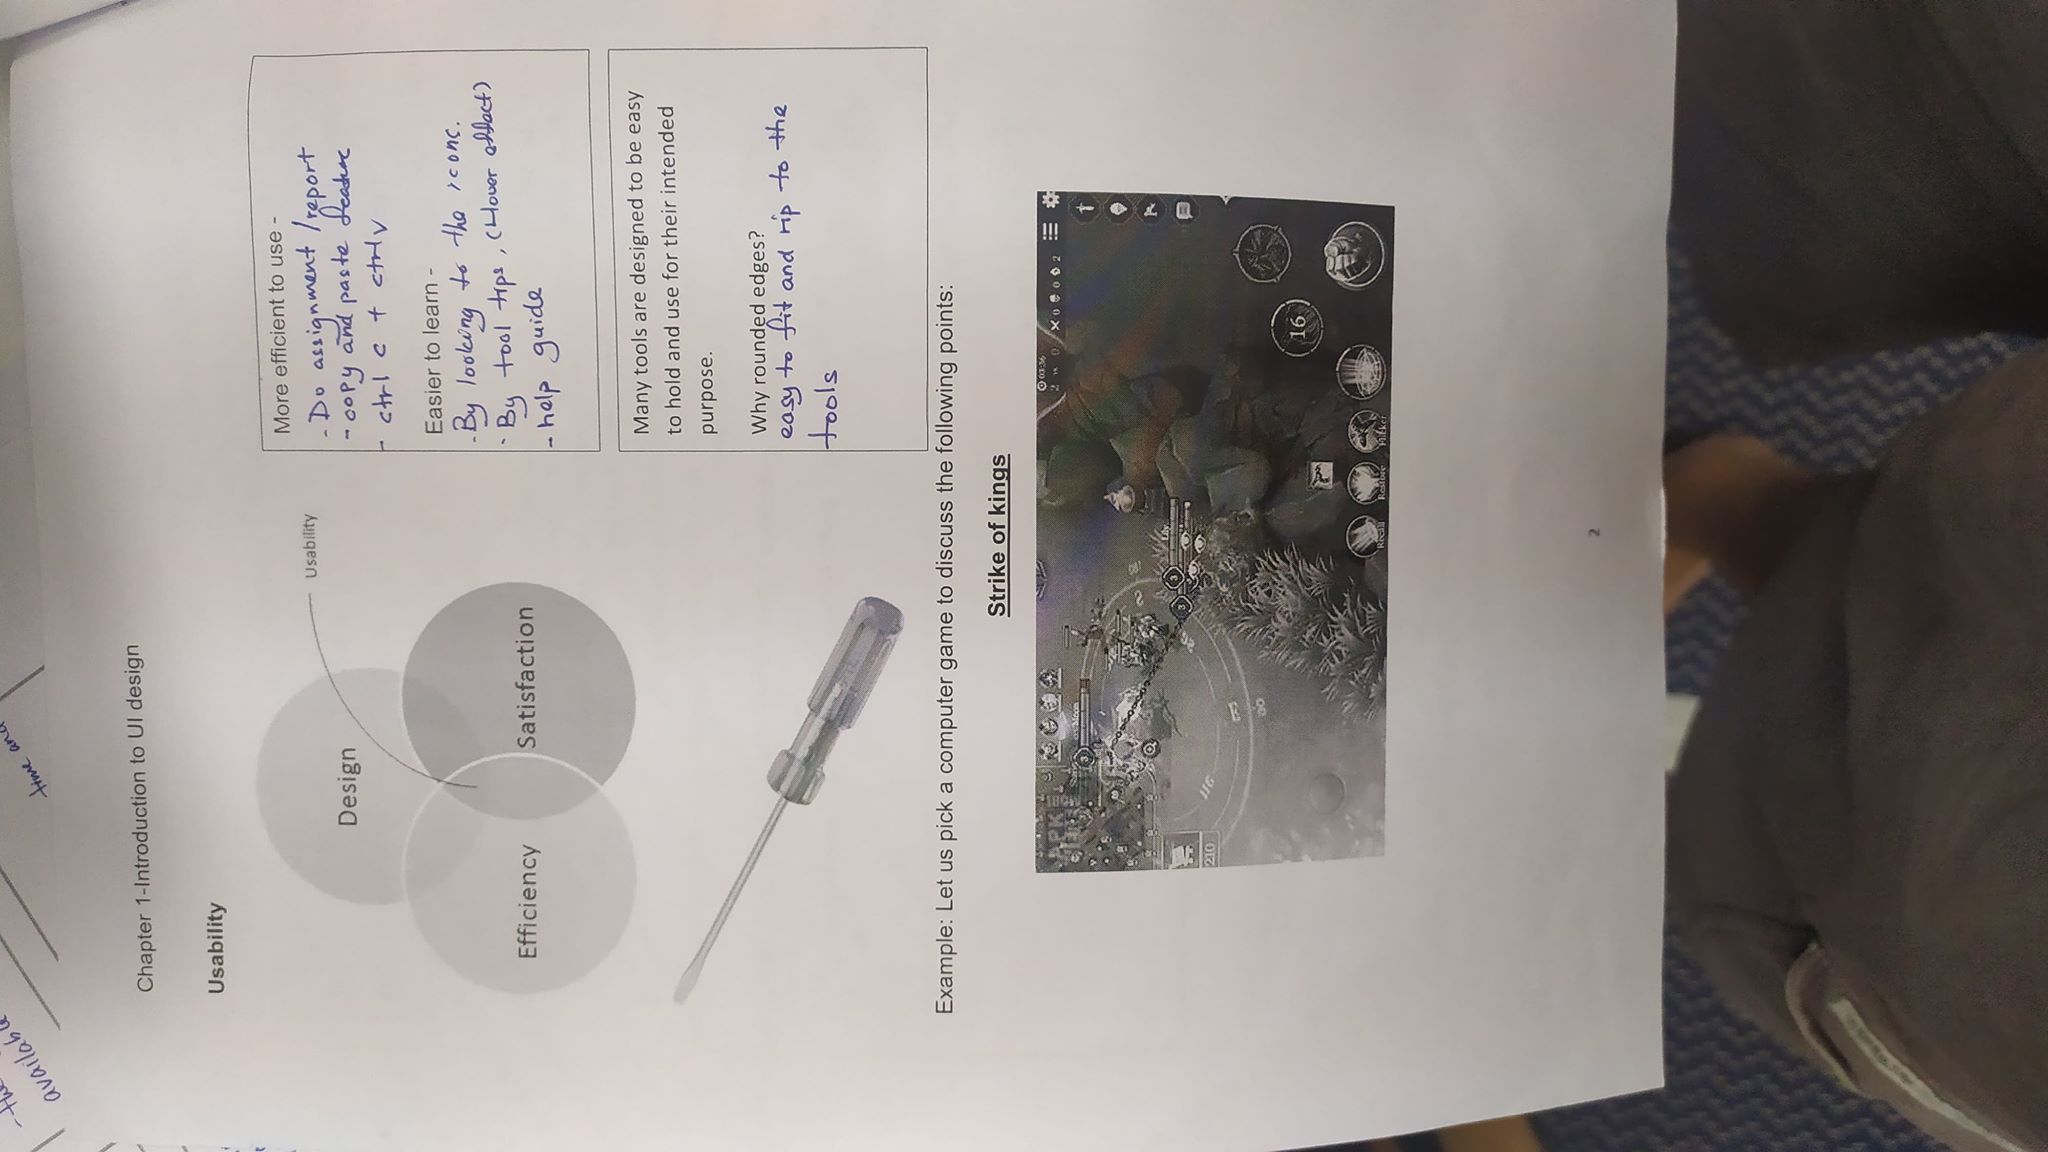 available
time and
Chapter 1-Introduction to UI design
Usability
Design
Usability
Efficiency
Satisfaction
More efficient to use -
- Do assignment / report
- copy and paste feature
- ctrl c + ctrl v
Easier to learn -
- By looking to the icons.
- By tool tips, (Hover effect)
- help guide
Many tools are designed to be easy
to hold and use for their intended
purpose.
Why rounded edges?
easy to fit and rip to the
tools
Example: Let us pick a computer game to discuss the following points:
Strike of kings
03:36
2 vs 0
0 0 2
Moon
3
Lily
3 3
210
16
Recall Restore Flicker
2